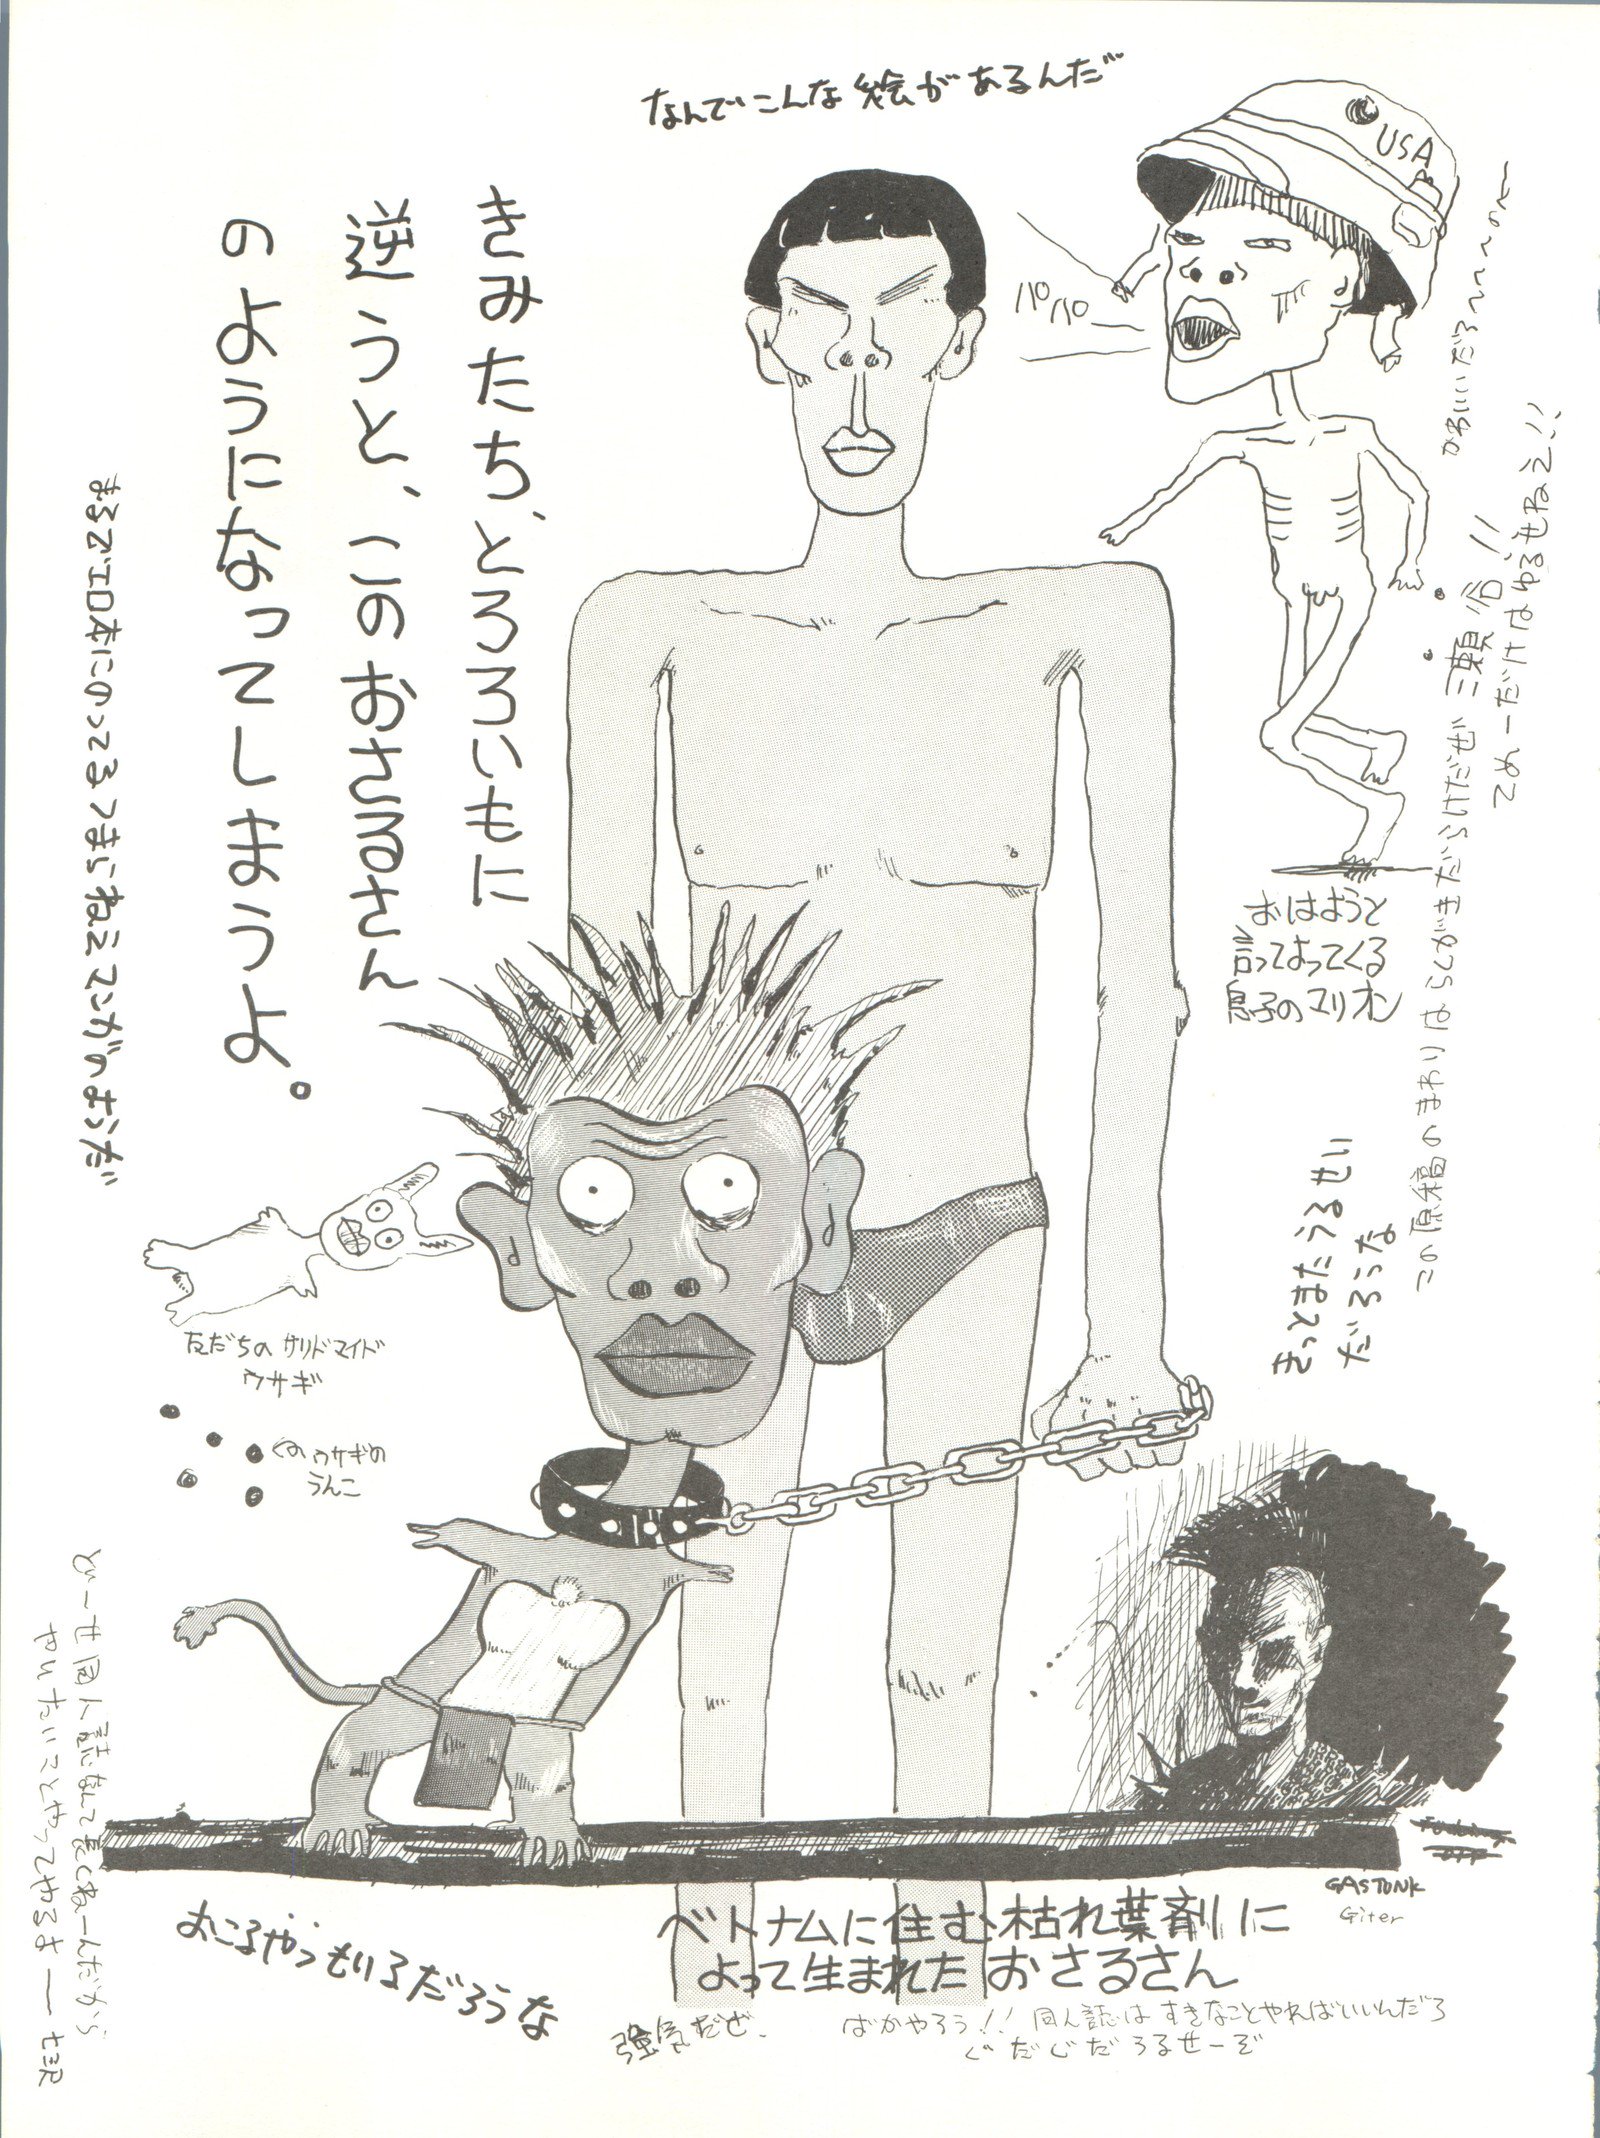 なんでこんな絵があるんだ
USA
パパー
かわいいだろ〜〜〜のォー
てめーだけはゆるせねえ!!
三瀬 治!!
この原稿のまわりはらくがきだらけだぜ
きみたち、とろろいもに
逆うと、このおさるさん
のようになってしまうよ。
まるでエロ本にのってるつまらねえマンガのようだ
おはようと
言ってよってくる
息子のマリオン
きっとまたうるせい
だろうな
友だちのサリドマイド
ウサギ
ウサギの
うんこ
どーせ同人誌なんて長くねーんだから
やりたいことやってやるさ——
GASTUNK
Giter
ベトナムに住む枯れ葉剤に
よって生まれたおさるさん
おこるやつもいるだろうな
強気だぜ、
ばかやろう!!同人誌はすきなことやればいいんだろ
ぐだぐだうるせーぞ